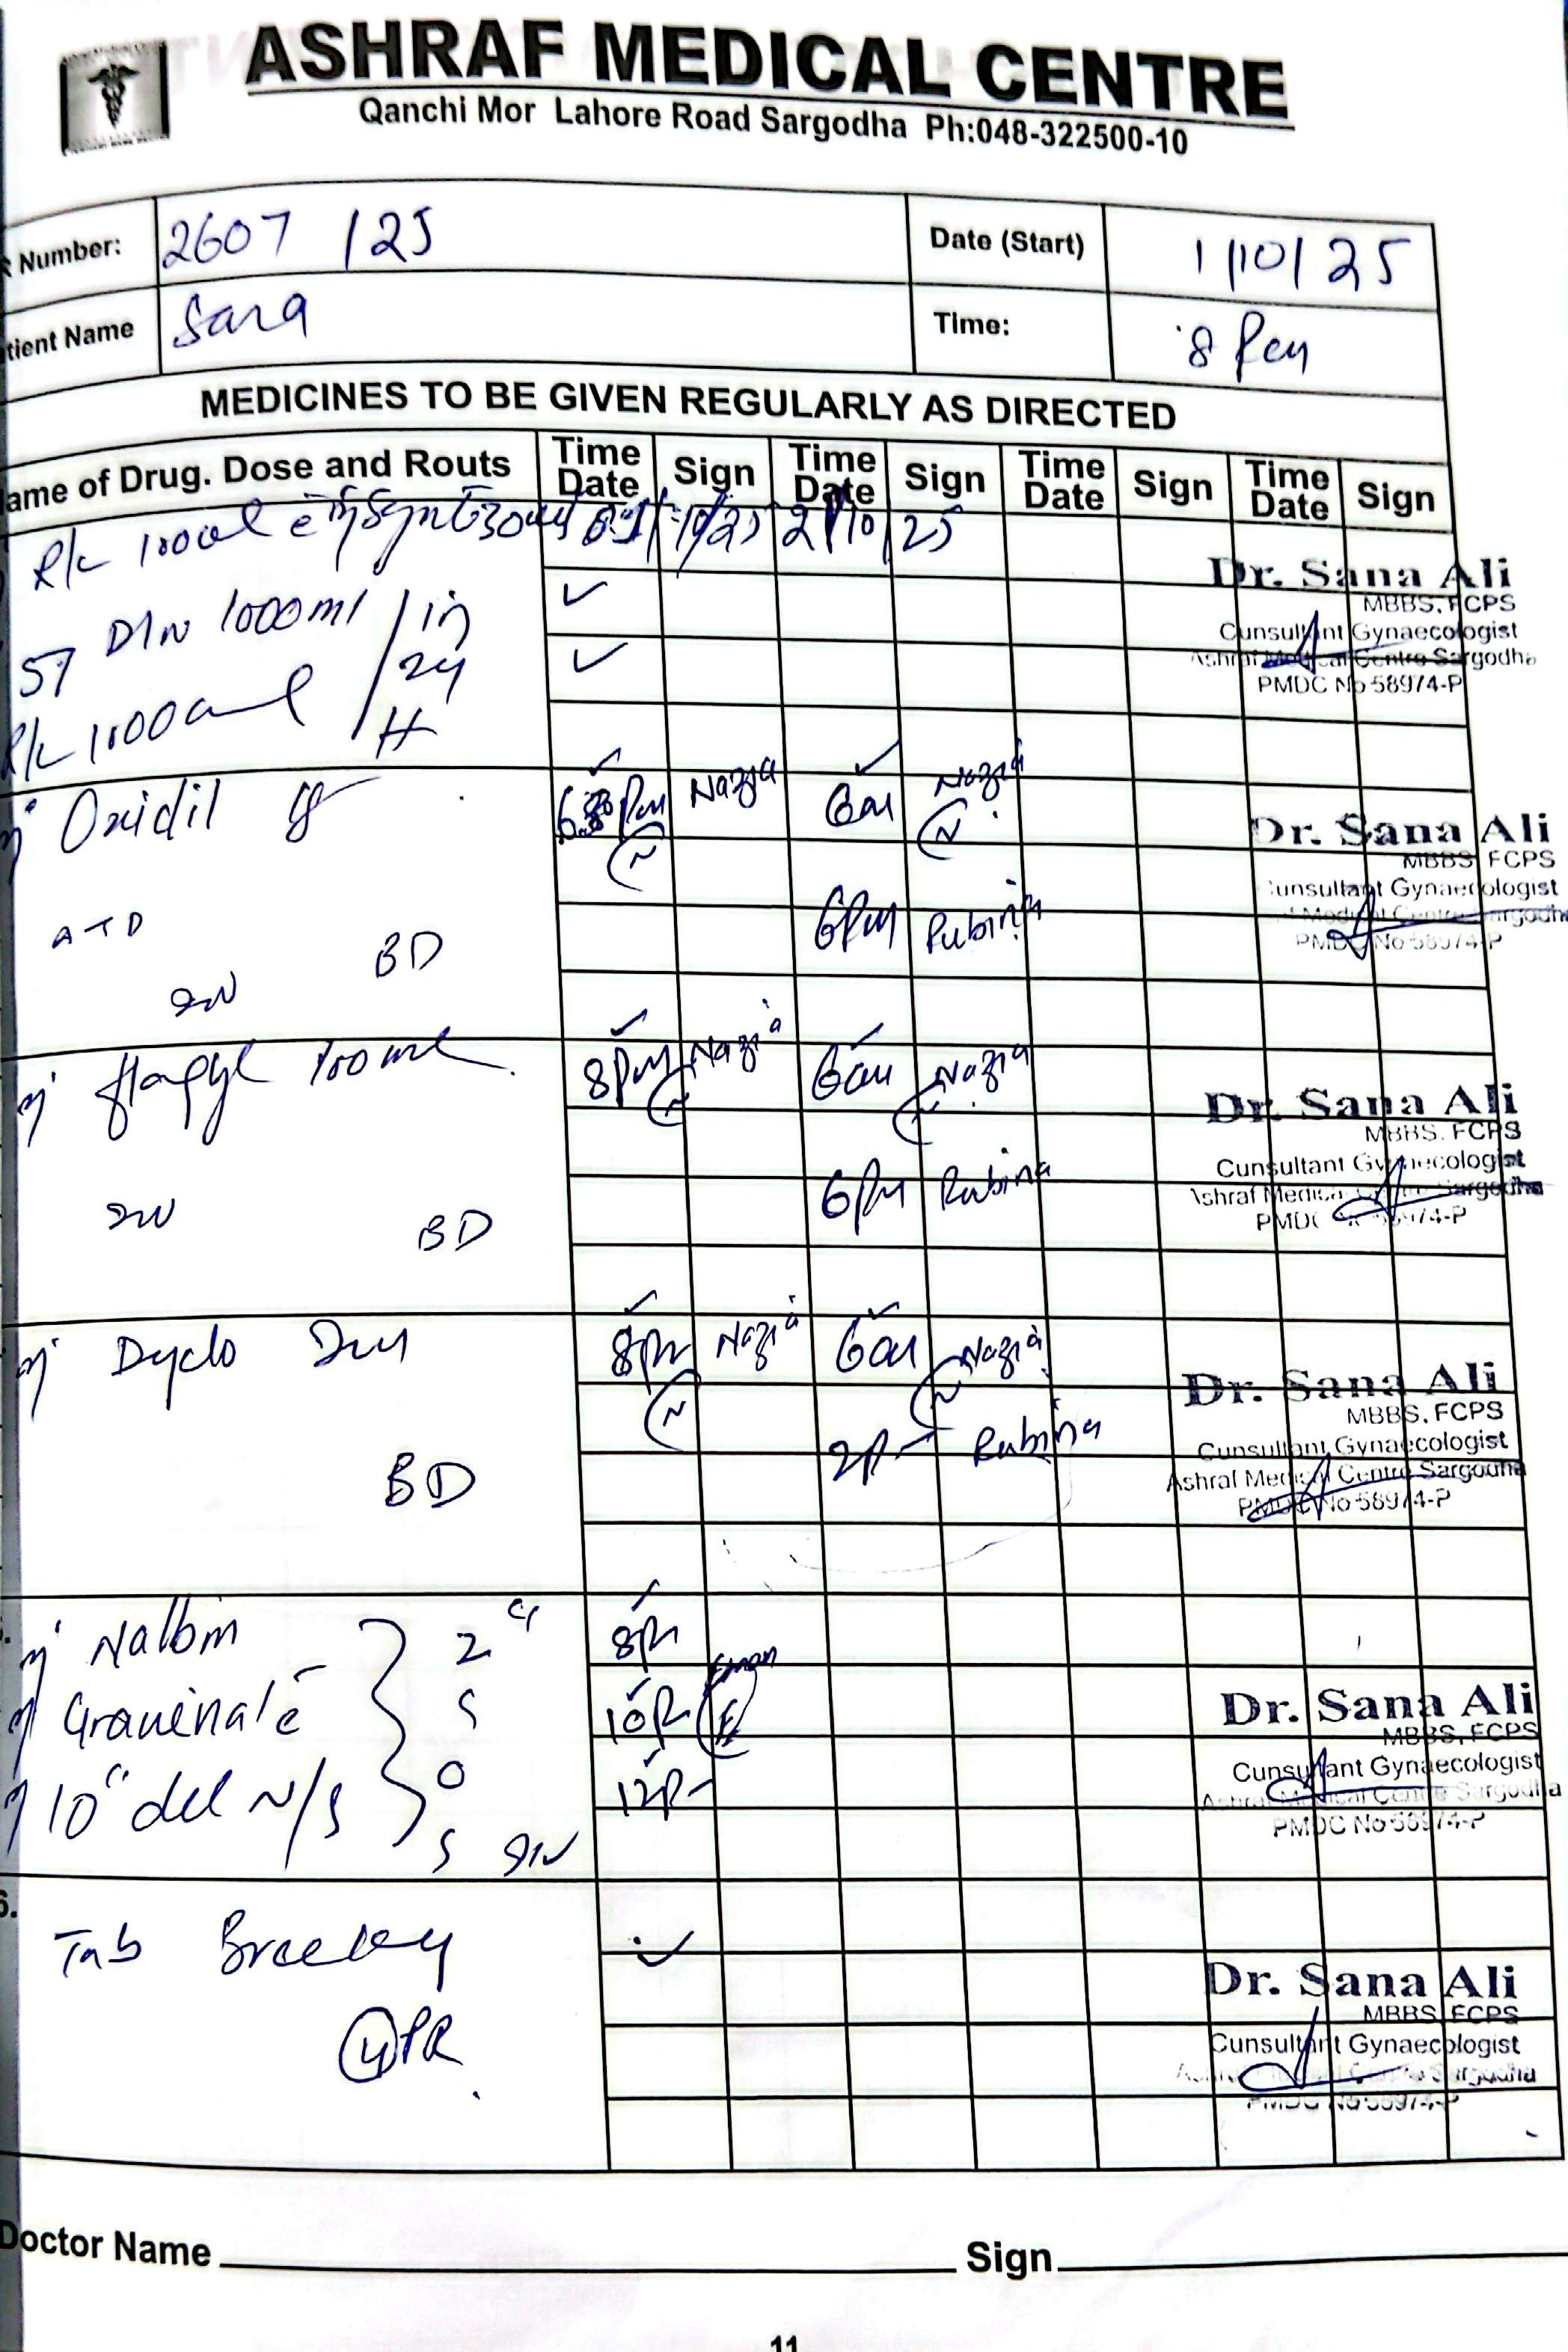 ASHRAF MEDICAL CENTRE
Qanchi Mor Lahore Road Sargodha Ph:048-322500-10
Number: 2607 / 25 Date (Start) 1/10/25
tient Name Sara Time: 8 Pm
MEDICINES TO BE GIVEN REGULARLY AS DIRECTED
ame of Drug. Dose and Routs Time Date Sign Time Date Sign Time Date Sign Time Date Sign
R/L 1000ml 1/10/25 2/10/25
Dr. Sana Ali
MBBS. FCPS
Cunsultant Gynaecologist
Ashraf Medical Centre Sargodha
PMDC No 58974-P
D/N 1000ml / in
R/L 1000ml / 24
H
Oxidil Nazia 6am Nazia
N N
Dr. Sana Ali
MBBS FCPS
unsultant Gynaecologist
Medical Centre Sargodha
PMDC No 58974-P
6Pm Rubina
ATD BD
Flagyl 100ml 8Pm Nazia 6am Nazia
Dr. Sana Ali
MBBS. FCPS
Cunsultant Gynaecologist
Ashraf Medical Centre Sargodha
PMDC
6Pm Rubina
BD
Dyclo 8Pm Nazia 6am Nazia
N N
Dr. Sana Ali
MBBS. FCPS
Cunsultant Gynaecologist
Ashraf Medical Centre Sargodha
PMDC No 58974-P
Rubina
BD
Nalbin 2 8Pm
Gravinate S 10P
10 del N/S O 12P
S
Dr. Sana Ali
MBBS. FCPS
Cunsultant Gynaecologist
Ashraf Medical Centre Sargodha
PMDC No 58974-P
6.
Tab
PR
Dr. Sana Ali
MBBS FCPS
Cunsultant Gynaecologist
Sargodha
PMDC No 58974-P
Doctor Name Sign
11